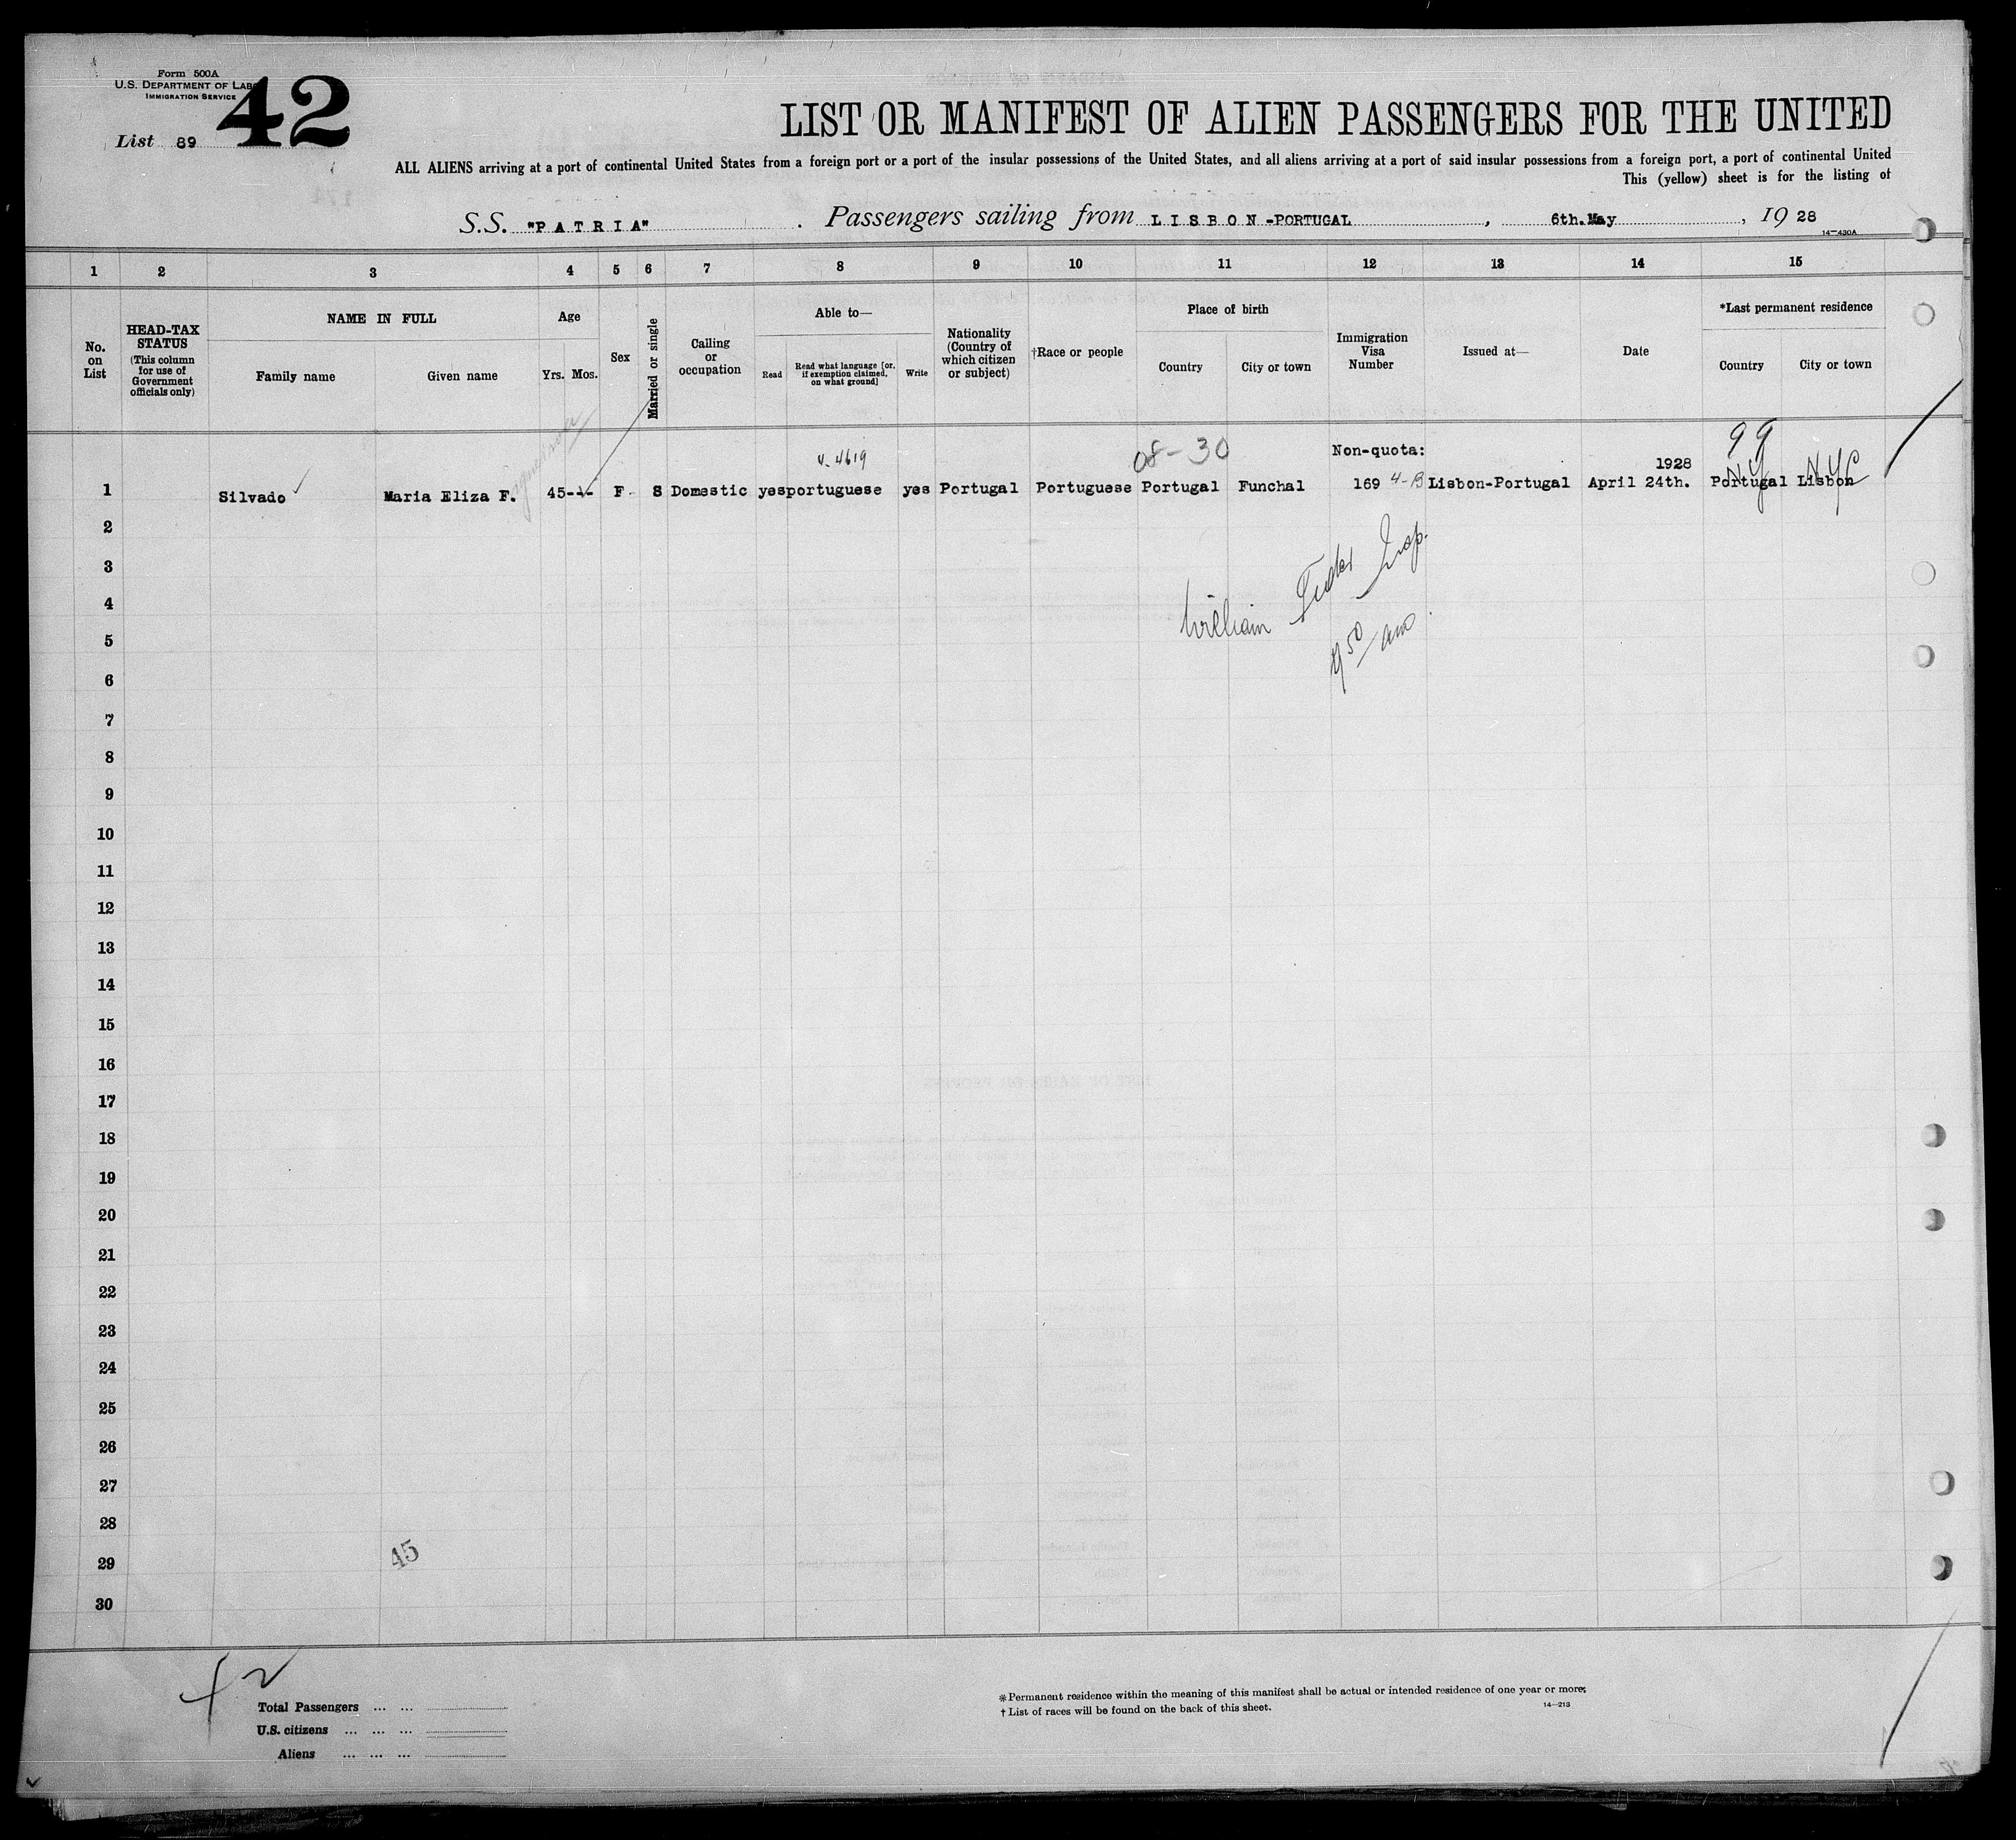 Form 500A
U.S. DEPARTMENT OF LAB
IMMIGRATION SERVICE
42
List 89
LIST OR MANIFEST OF ALIEN PASSENGERS FOR THE UNITED
ALL ALIENS arriving at a port of continental United States from a foreign port or a port of the insular possessions of the United States, and all aliens arriving at a port of said insular possessions from a foreign port, a port of continental United
This (yellow) sheet is for the listing of
S.S. "PATRIA". Passengers sailing from LISBON-PORTUGAL, 6th.May, 1928
14—430A
1 2 3 4 5 6 7 8 9 10 11 12 13 14 15
No. on List
HEAD-TAX STATUS
(This column for use of Government officials only)
NAME IN FULL
Family name Given name
Age
Yrs. Mos.
Sex
Married or single
Calling or occupation
Able to—
Read
Read what language [or, if exemption claimed, on what ground]
Write
Nationality (Country of which citizen or subject)
†Race or people
Place of birth
Country City or town
Immigration Visa Number
Issued at—
Date
*Last permanent residence
Country City or town
v-4619 08-30 Non-quota: 1928 99
NY NYC
1 Silvado Maria Eliza F. 45 F S Domestic yes portuguese yes Portugal Portuguese Portugal Funchal 169 4-B Lisbon-Portugal April 24th. Portugal Lisbon
2
3
4
William Insp.
5
6
7
8
9
10
11
12
13
14
15
16
17
18
19
20
21
22
23
24
25
26
27
28
29
45
30
42
Total Passengers ... ...
U.S. citizens ... ... ...
Aliens ... ... ...
*Permanent residence within the meaning of this manifest shall be actual or intended residence of one year or more.
† List of races will be found on the back of this sheet.
14—213